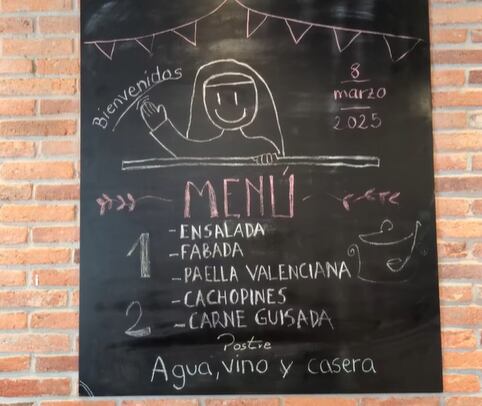 Bienvenidas
8
marzo
2025
MENÚ
1
- ENSALADA
- FABADA
- PAELLA VALENCIANA
2
- CACHOPINES
- CARNE GUISADA
Postre
Agua, vino y casera